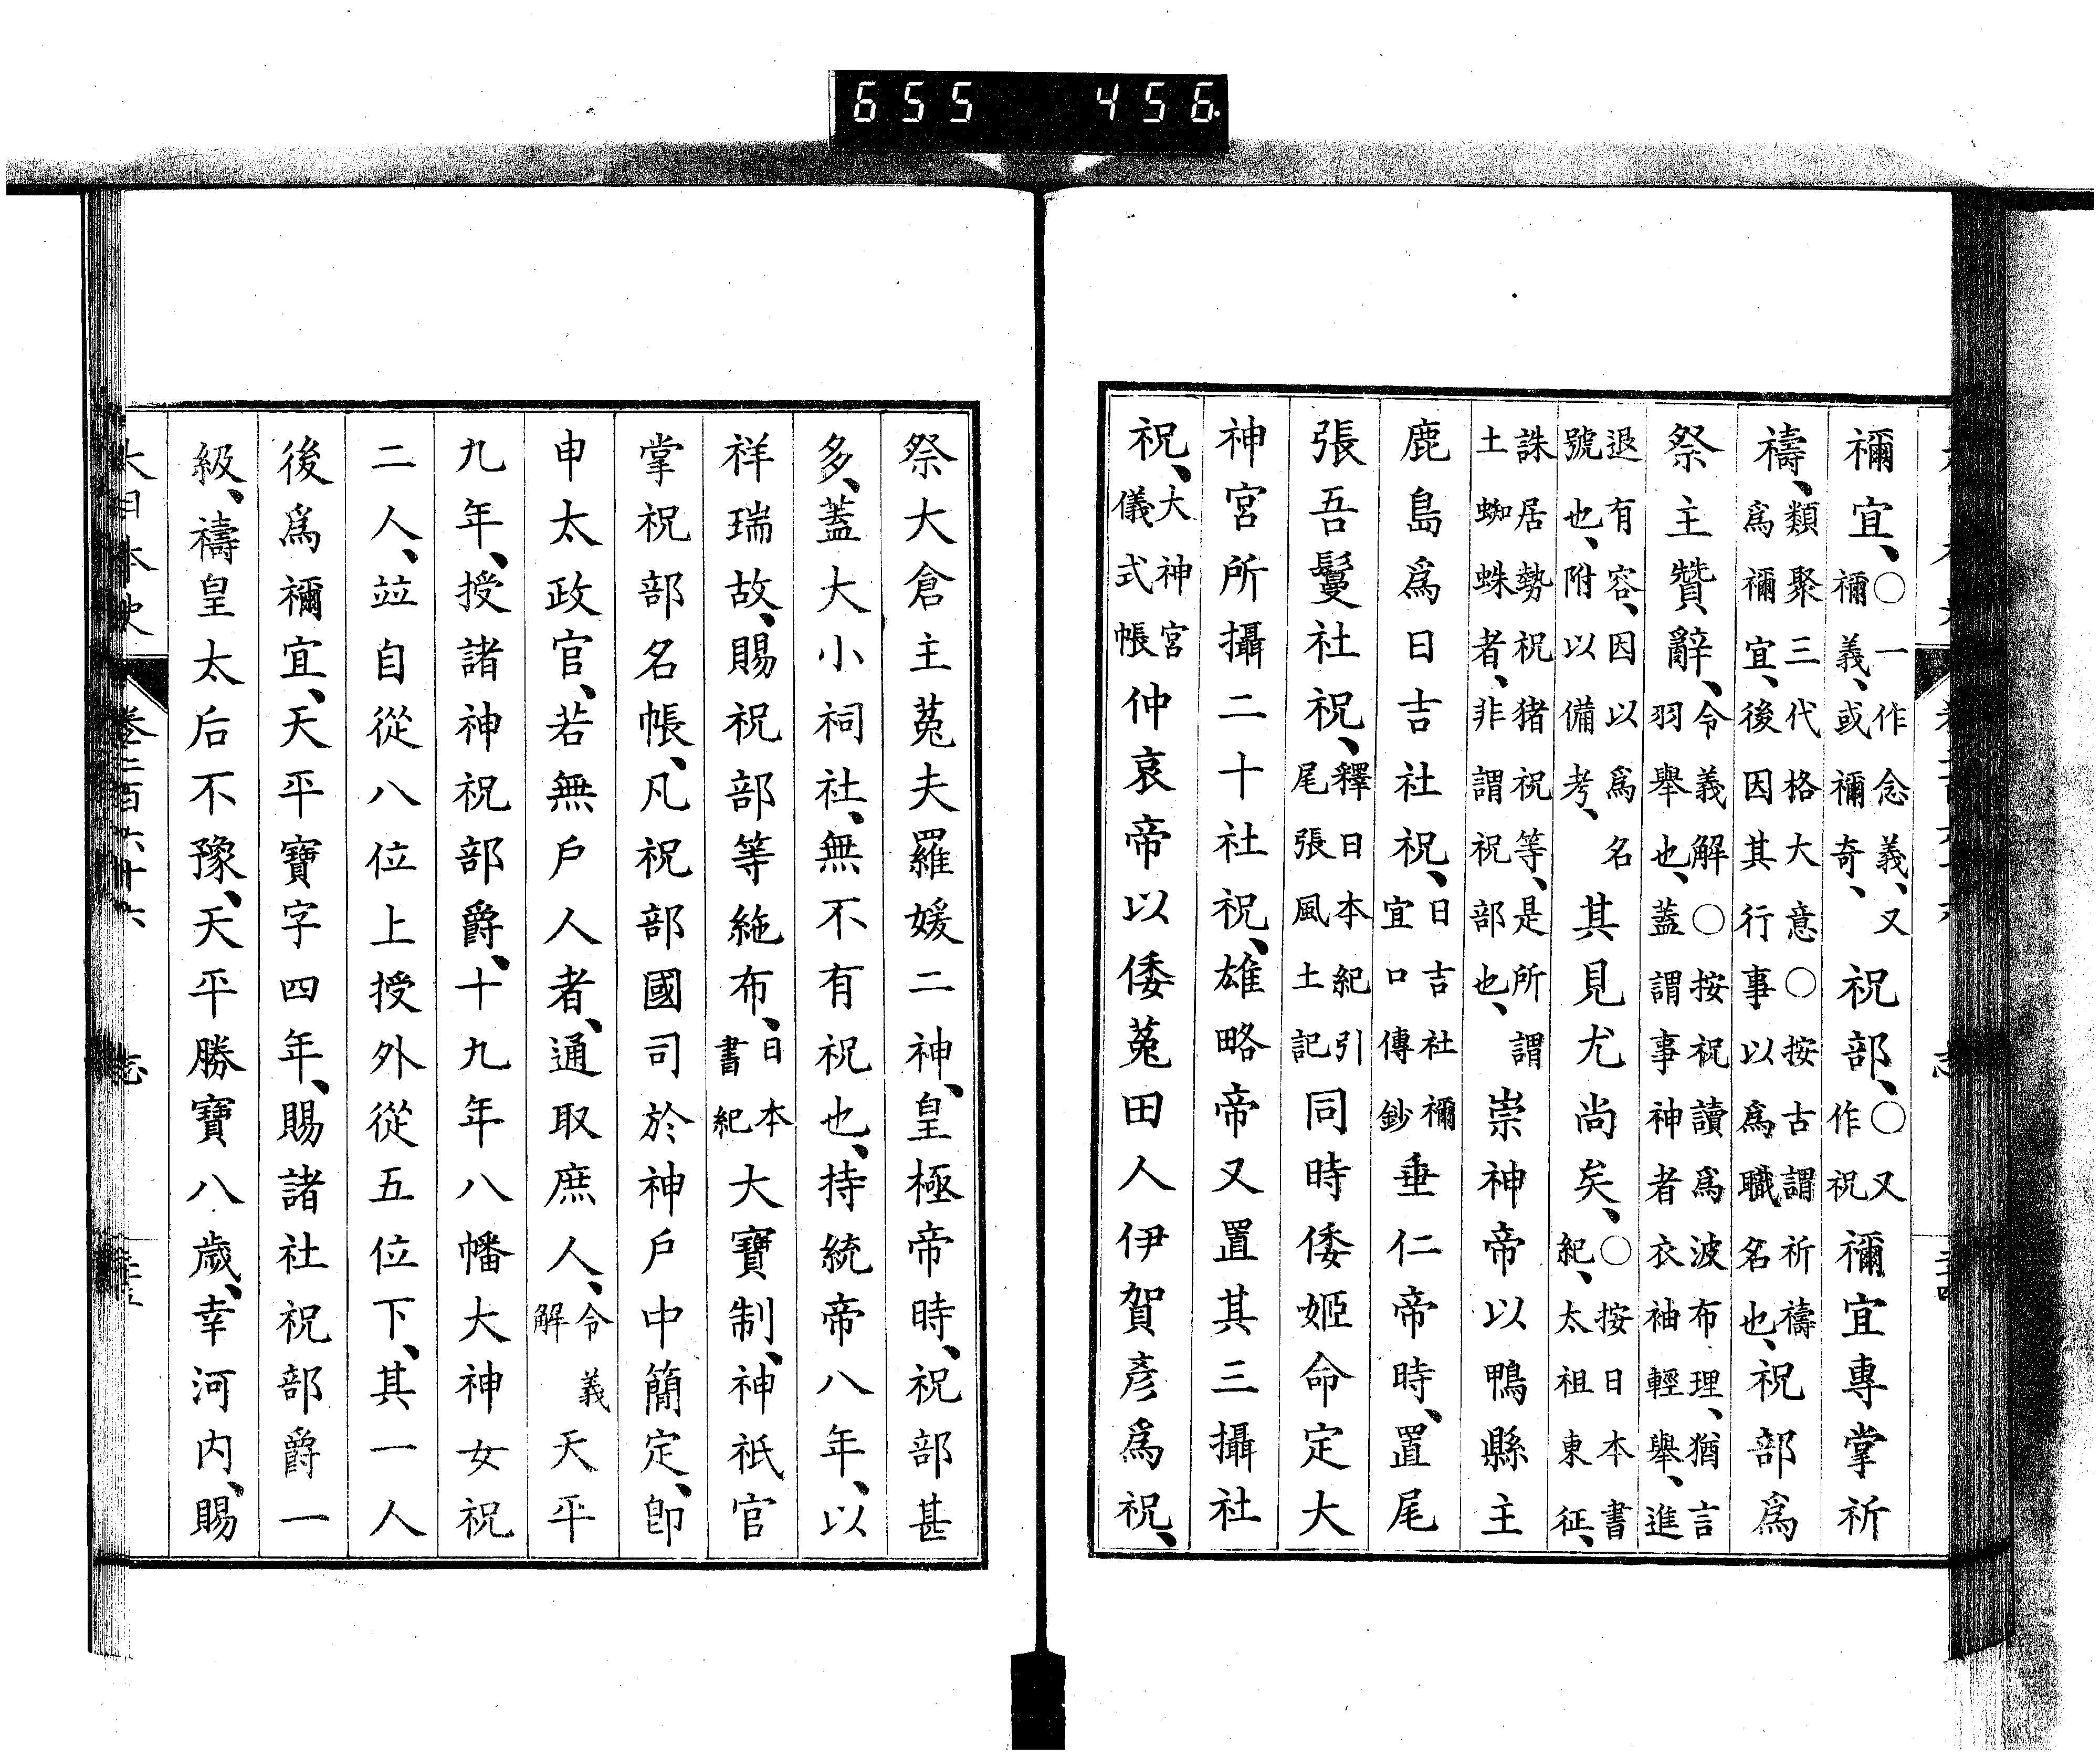 655 456
禰宜、〇一作念義、又禰義、或禰奇、祝部、〇又作祝禰宜專掌祈
禱、類聚三代格大意〇按古謂祈禱爲禰宜、後因其行事以爲職名也、祝部爲
祭主贊辭、令義解〇按祝讀爲波布理、猶言羽舉也、蓋謂事神者衣袖輕舉、進
退有容、因以爲名號也、附以備考、其見尤尚矣、〇按日本書紀、太祖東征、
誅居勢祝猪祝等、是所謂土蜘蛛者、非謂祝部也、崇神帝以鴨縣主
鹿島爲日吉社祝、日吉社禰宜口傳鈔垂仁帝時、置尾
張吾鬘社祝、釋日本紀引尾張風土記同時倭姬命定大
神宮所攝二十社祝、雄略帝又置其三攝社
祝、大神宮儀式帳仲哀帝以倭菟田人伊賀彥爲祝、
祭大倉主菟夫羅媛二神、皇極帝時、祝部甚
多、蓋大小祠社、無不有祝也、持統帝八年、以
祥瑞故、賜祝部等絁布、日本書紀大寶制、神祇官
掌祝部名帳、凡祝部國司於神戶中簡定、卽
申太政官、若無戶人者、通取庶人、令義解天平
九年、授諸神祝部爵、十九年八幡大神女祝
二人、竝自從八位上授外從五位下、其一人
後爲禰宜、天平寶字四年、賜諸社祝部爵一
級、禱皇太后不豫、天平勝寶八歲、幸河内、賜
大日本史 卷二百六十六 志